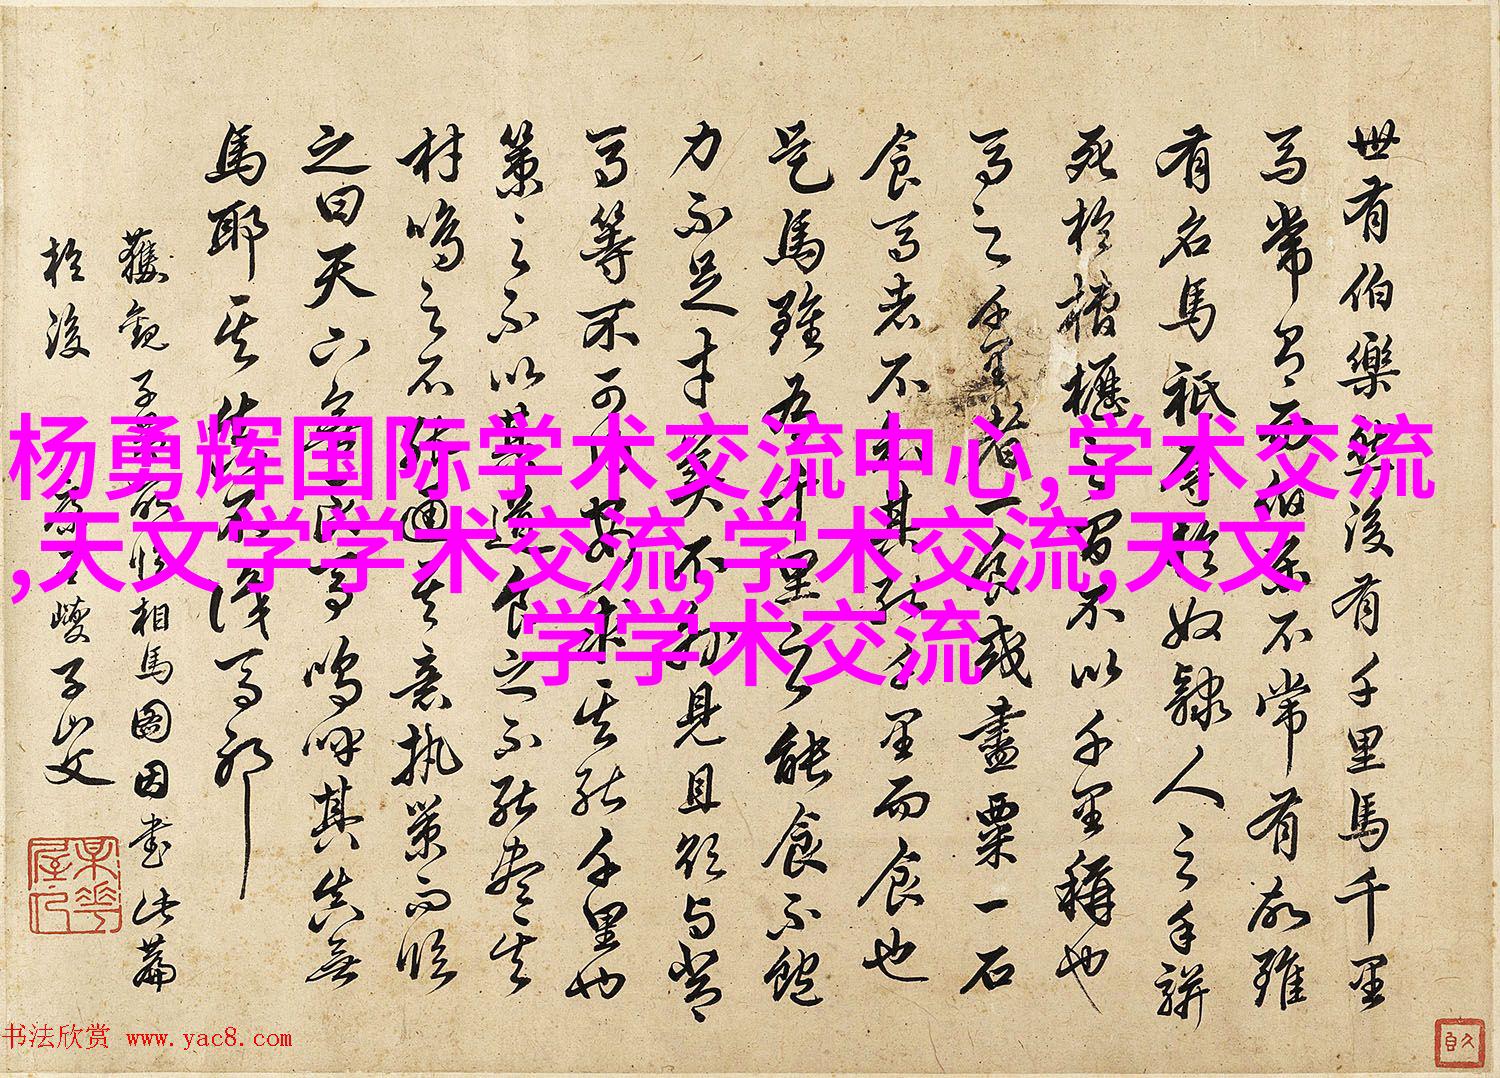 杨勇辉国际学术交流中心,学术交流
,天文学学术交流,学术交流,天文
学学术交流
世有伯樂然後有千里馬千里
馬常有而伯樂不常有故雖
有名馬祇辱於奴隸人之手駢
死於槽櫪之間不以千里稱也
馬之千里者一食或盡粟一石
食馬者不知其能千里而食也
是馬雖有千里之能食不飽
力不足才美不外見且欲與常
馬等不可得安求其能千里也
策之不以其道食之不能盡其
材鳴之不能通其意執策而臨
之曰天下無良馬嗚呼其真無
馬耶其不識馬耶
獲觀子所相馬圖因書此篇
於後 康里巎子山父
书法欣赏 www.yac8.com